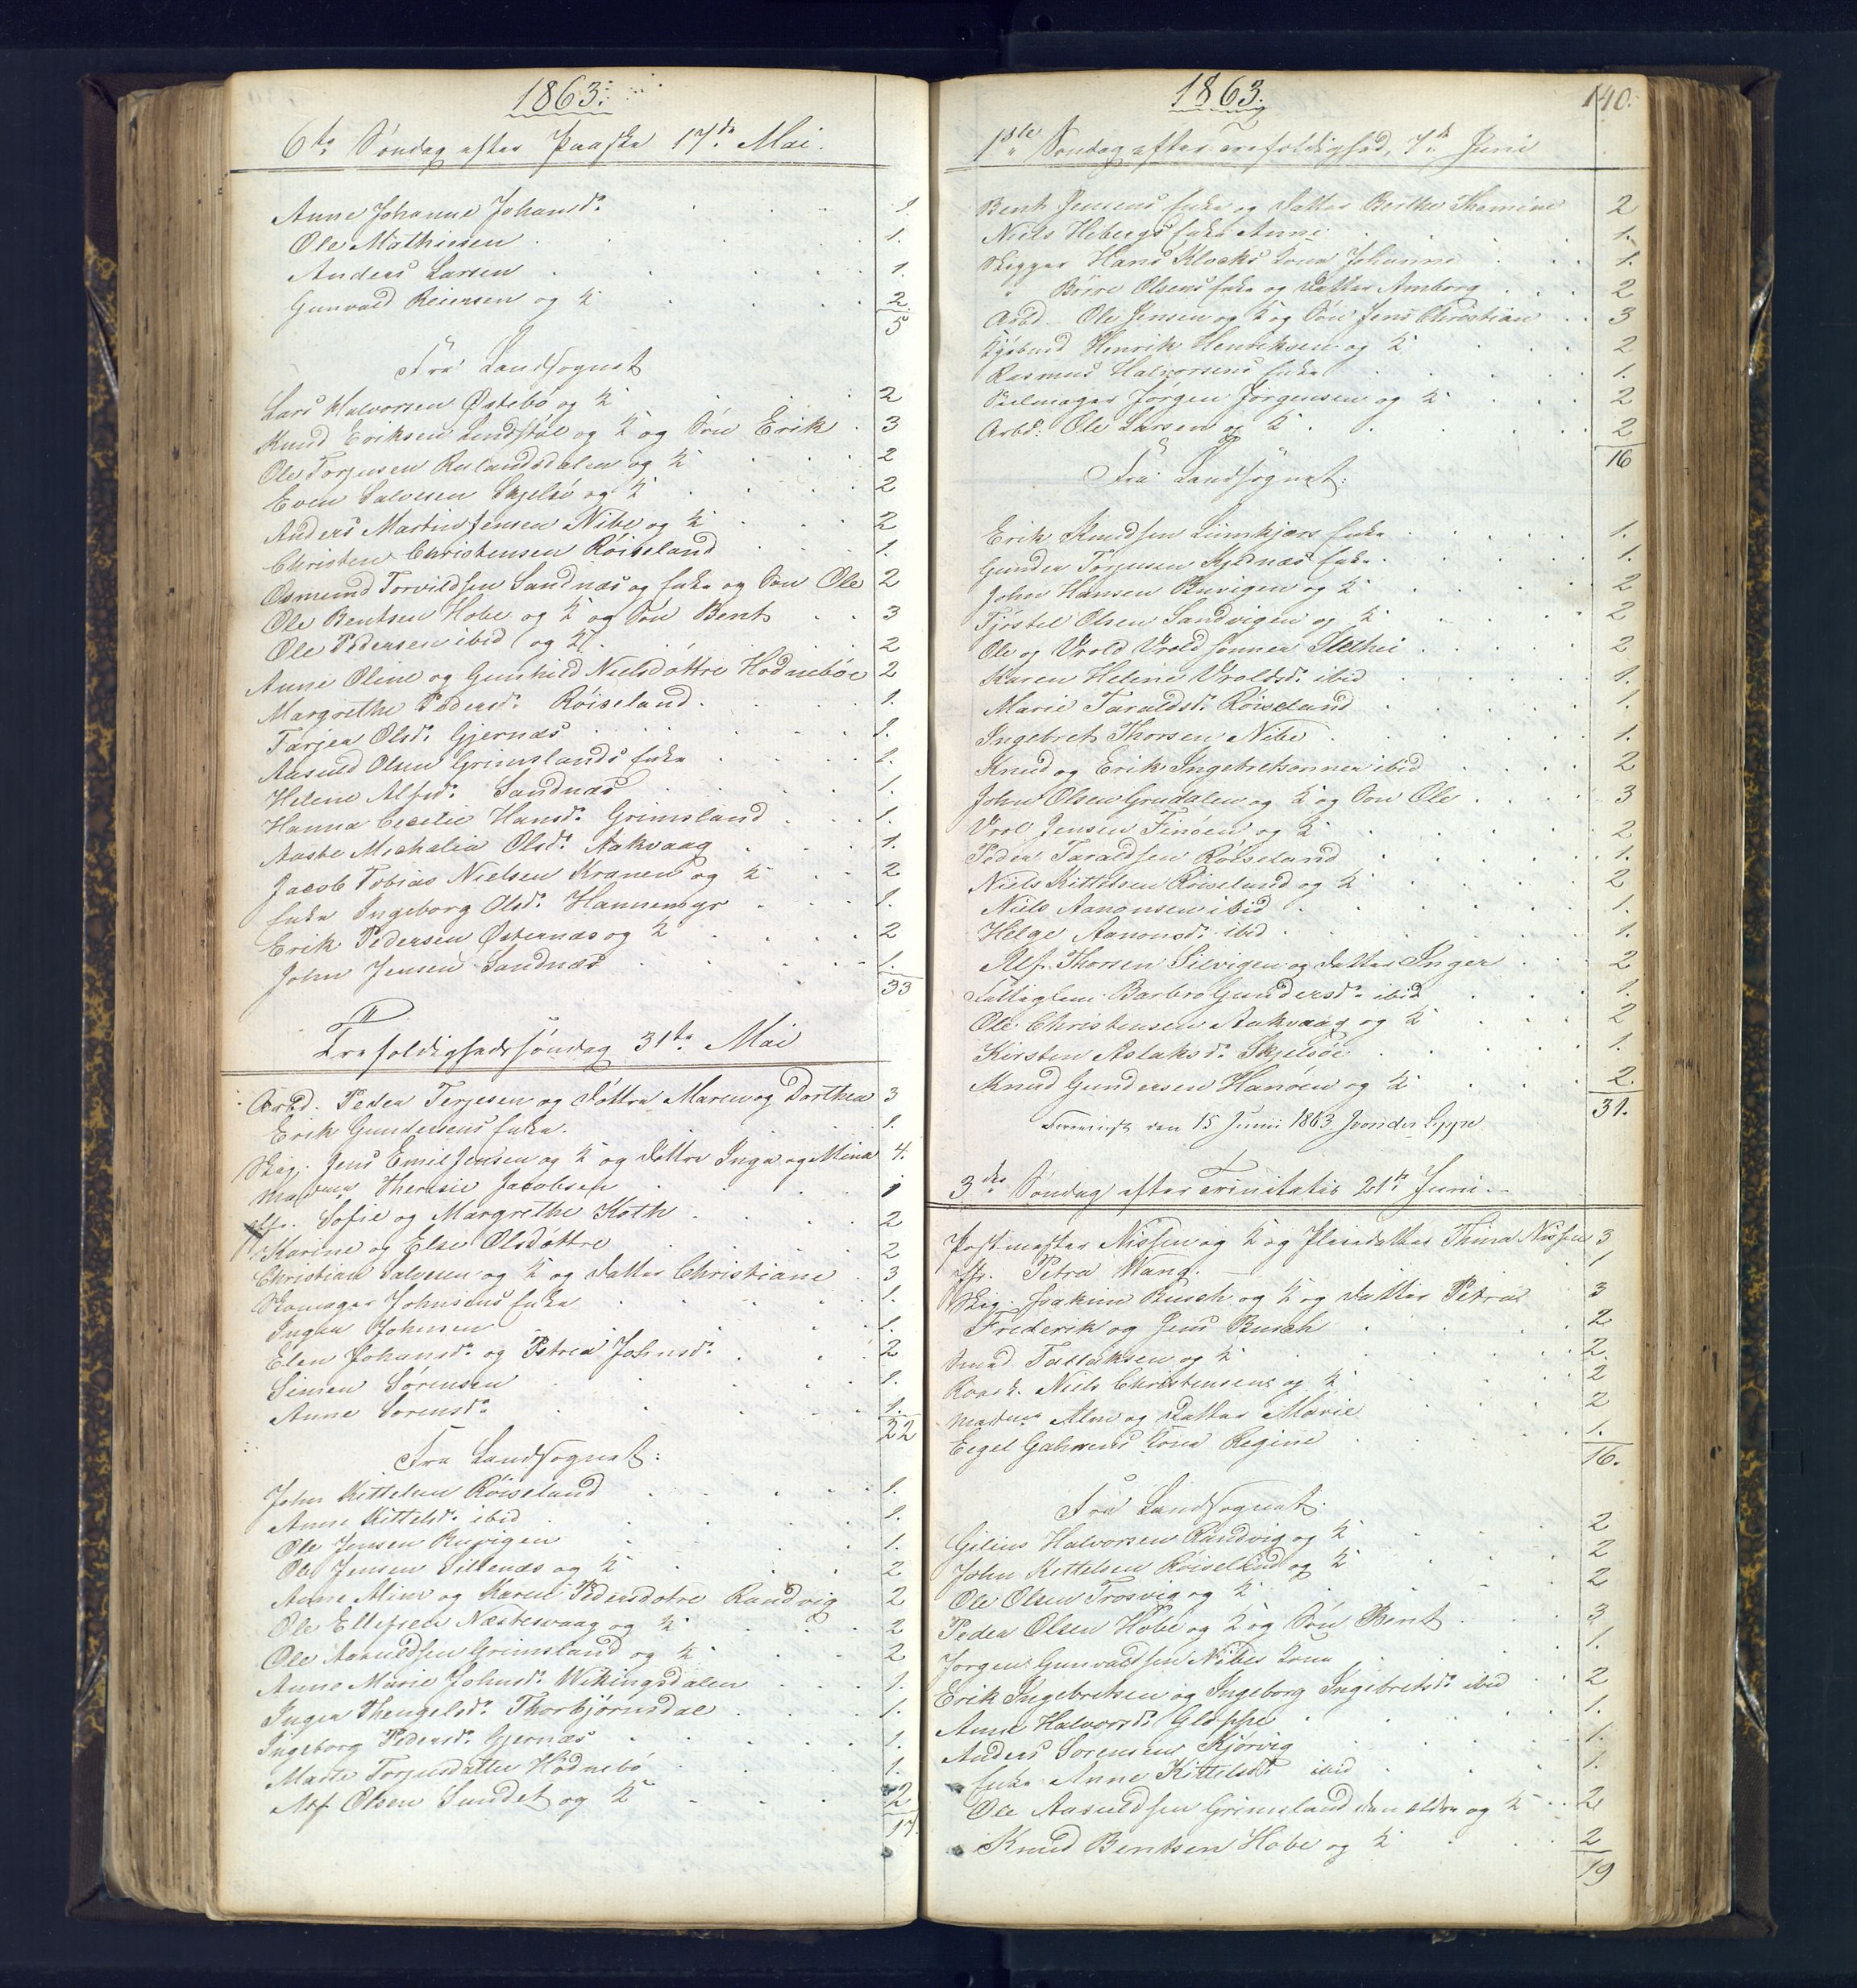 1863.
6te Søndag efter Paaske 17de Mai.
Anne Johanne Johansd. 1.
Ole Mathiesen 1.
Anders Larsen 1.
Gunvald Reiersen og K 2
5
Fra Landsognet
Lars Halvorsen Østebö og K 2
Knud Eriksen Lindstøl og K og Sön Erik 3
Ole Torjusen Rulandsdalen og K 2
Even Salvesen Skjelsö og K 2
Anders Martin Jensen Nibe og K 2
Christen Christensen Röiseland 1.
Osmund Torvildsen Sandnæs og Enke og Sön Ole 2
Ole Bentsen Hobe og K og Sön Bent 3
Ole Pedersen ibid og K 2
Anne Oline og Gunhild Nielsdöttre Hødnebøe 2
Margrethe Pedersd. Röiseland. 1.
Tarjer Olsd. Gjernæs 1.
Aasuld Olsen Grimslands Enke 1.
Helene Alfsd. Sandnæs 1.
Hanna Cecilie Hansd. Grimsland 1.
Aaste Michalia Olsd. Aakvaag 1.
Jacob Tobias Nielsen Kranen og K 2
Enke Ingeborg Olsd. Hannemyr 1.
Erik Pedersen Østernæs og K 2
John Jensen Sandnæs 1.
33
Trefoldighedssøndag 31te Mai
Arbd. Peder Terjesen og Döttre Maren og Dorthea 3
Erik Gundersens Enke. 1.
Skip. Jens Emil Jensen og K og Döttre Inga og Mina 4.
Madme Theresie Jacobsen 1
Jfr. Sofie og Margrethe Koth 2
Karine og Else Olsdöttre 2
Christian Salvesen og K og Datter Christiane 3
Skomager Johnsens Enke 1.
Inger Johnsen 1.
Elen Johansd. og Petrea Johnsd. 2
Simen Sörensen 1.
Anne Sörensd. 1.
22
Fra Landsognet:
John Kittelsen Röiseland 1.
Anne Kittelsd. ibid 1.
Ole Jensen Buvigen 1.
Ole Jensen Sillenæs og K 2
Anne Mine og Karen Pedersdotre Randvig 2
Ole Ellefsen Næstesvaag og K 2
Ole Aasuldsen Grimsland og K 2
Anne Marie Johnsd. Wikingsdalen 1.
Inger Thengelsd. Thorbjörnsdal 1.
Ingeborg Pedersd. Gjernæs 1.
Marte Torjusdatter Hødnebö 1.
Alf Olsen Sundet og K 2
17.
1863.
140.
1ste Søndag efter Trefoldighed, 7de Juni
Bent Jensens Enke og Datter Berthe Themine 2
Niels Hebergs Enke Anne 1.
Skipper Hans Klocks Kone Johanne 1.
" Börre Olsens Enke og Datter Amborg 2
Arbd. Ole Jensen og K og Sön Jens Christian 3
Kjöbmd Henrik Henriksen og K 2
Rasmus Halvorsens Enke 1.
Seilmager Jörgen Jörgensen og K 2
Arbd: Ole Larsen og K. 2
16
Fra Landsognet:
Erik Knudsen Limkjærs Enke 1.
Gunder Torjusen Gjernæs Enke. 1.
John Hansen Buvigen og K 2
Tjöstel Olsen Sandvigen og K 2
Ole og Vrold Vroldsönner Hethei 2
Karen Helene Vroldsd. ibid 1.
Marie Taraldsd. Röiseland 1.
Ingebret Thorsen Nibe 1.
Knud og Erik Ingebretsønner ibid 2
John Olsen Grudalen og K og Sön Ole 3
Vrol Jensen Finöen og K 2
Peder Taraldsen Röiseland 1.
Niels Kittelsen Röiseland og K 2
Niels Aanonsen ibid 1.
Helge Aanonsd. ibid 1.
Alf Thorsen Silvigen og Datter Inger 2
Fattiglem Barbro Gundersd. ibid 1.
Ole Christensen Aakvaag og K 2
Kirsten Aslaksd. Skjelsöe 1.
Knud Gundersen Hanöen og K 2
31.
den 15 Juni 1863
3die Søndag efter Trinitatis 21de Juni.
Postmester Nissen og K og Pleiedatter Thina Nissen 3
Jfr. Petra Wang. 1
Skip. Joakim Busch og K og Datter Petra 3
Frederik og Jens Busch 2
Smed Tallaksen og K 2.
Niels Christensen og K 2
Madme Alm og Datter Marie 2
Eegel Gahrens Kone Regine 1.
16.
Fra Landsognet.
Gilius Halvorsen Randvig og K 2
John Kittelsen Röiseland og K 2
Ole Olsen Trosvig og K 2
Peder Olsen Hobe og K og Sön Bent 3
Jorgen Gunvaldsen Nibes Kone 1.
Erik Ingebretsen og Ingeborg Ingebretsd. ibid 2
Anne Halvorsd. Gloppe 1.
Anders Sorensen Kjörvig 1.
Enke Anne Kittelsd. ibid 1.
Ole Aasuldsen Grimsland den ældre og K 2
Knud Bentsen Hobe og K 2
19